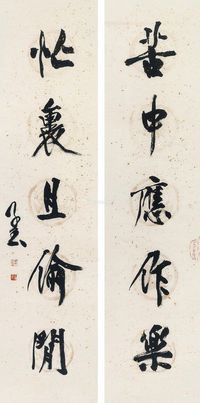 苦中應作樂
忙裏且偷閒